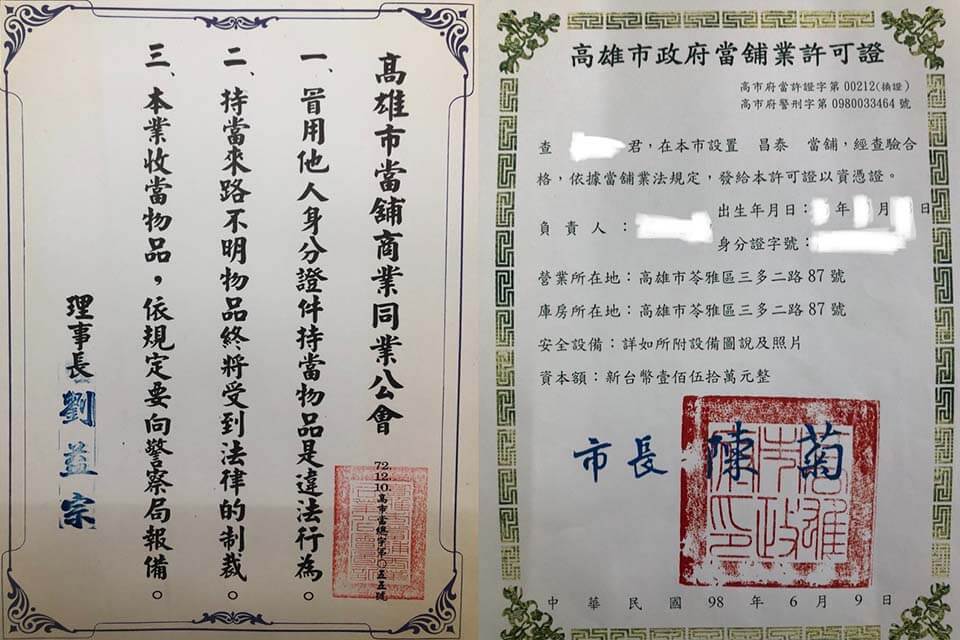 高雄市當舖商業同業公會
一、冒用他人身分證件持當物品是違法行為。
二、持當來路不明物品終將受到法律的制裁。
三、本業收當物品，依規定要向警察局報備。
理事長 劉益宗
72.12.10.高市當總字第〇五五號
高雄市政府當舖業許可證
高市府當許證字第00212(換證)
高市府警刑字第0980033464號
查 君，在本市設置 昌泰 當舖，經查驗合
格，依據當舖業法規定，發給本許可證以資憑證。
出生年月日： 年 月 日
負責人：
身分證字號：
營業所在地：高雄市苓雅區三多二路87號
庫房所在地：高雄市苓雅區三多二路87號
安全設備：詳如所附設備圖說及照片
資本額：新台幣壹佰伍拾萬元整
市長 陳菊
高雄市政府印
中華民國 98 年 6 月 9 日